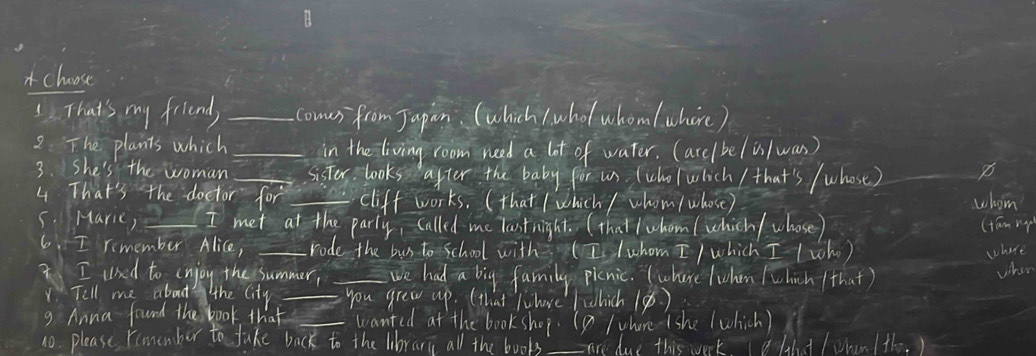 * Choose
1. That's my friend, ____ comes from Japan. (which / who / whom / where)
2. The plants which ____ in the living room need a lot of water. (are / be / is / was)
3. She's the woman ____ sister looks after the baby for us. (who / which / that's / whose)
Ø
4. That's the doctor for ____ cliff works. (that / which / whom / whose)
whom
5. Marie, ____ I met at the party, called me last night. (that / whom / which / whose)
6. I remember Alice, ____ rode the bus to school with. (I / whom I / which I / who)
where
7. I used to enjoy the summer, ____ we had a big family picnic. (where / when / which / that)
when
8. Tell me about the city ____ you grew up. (that / where / which / Ø)
9. Anna found the book that ____ wanted at the book shop. (Ø / where / she / which)
10. please remember to take back to the library all the books ____ are due this week. (Ø / that / when /